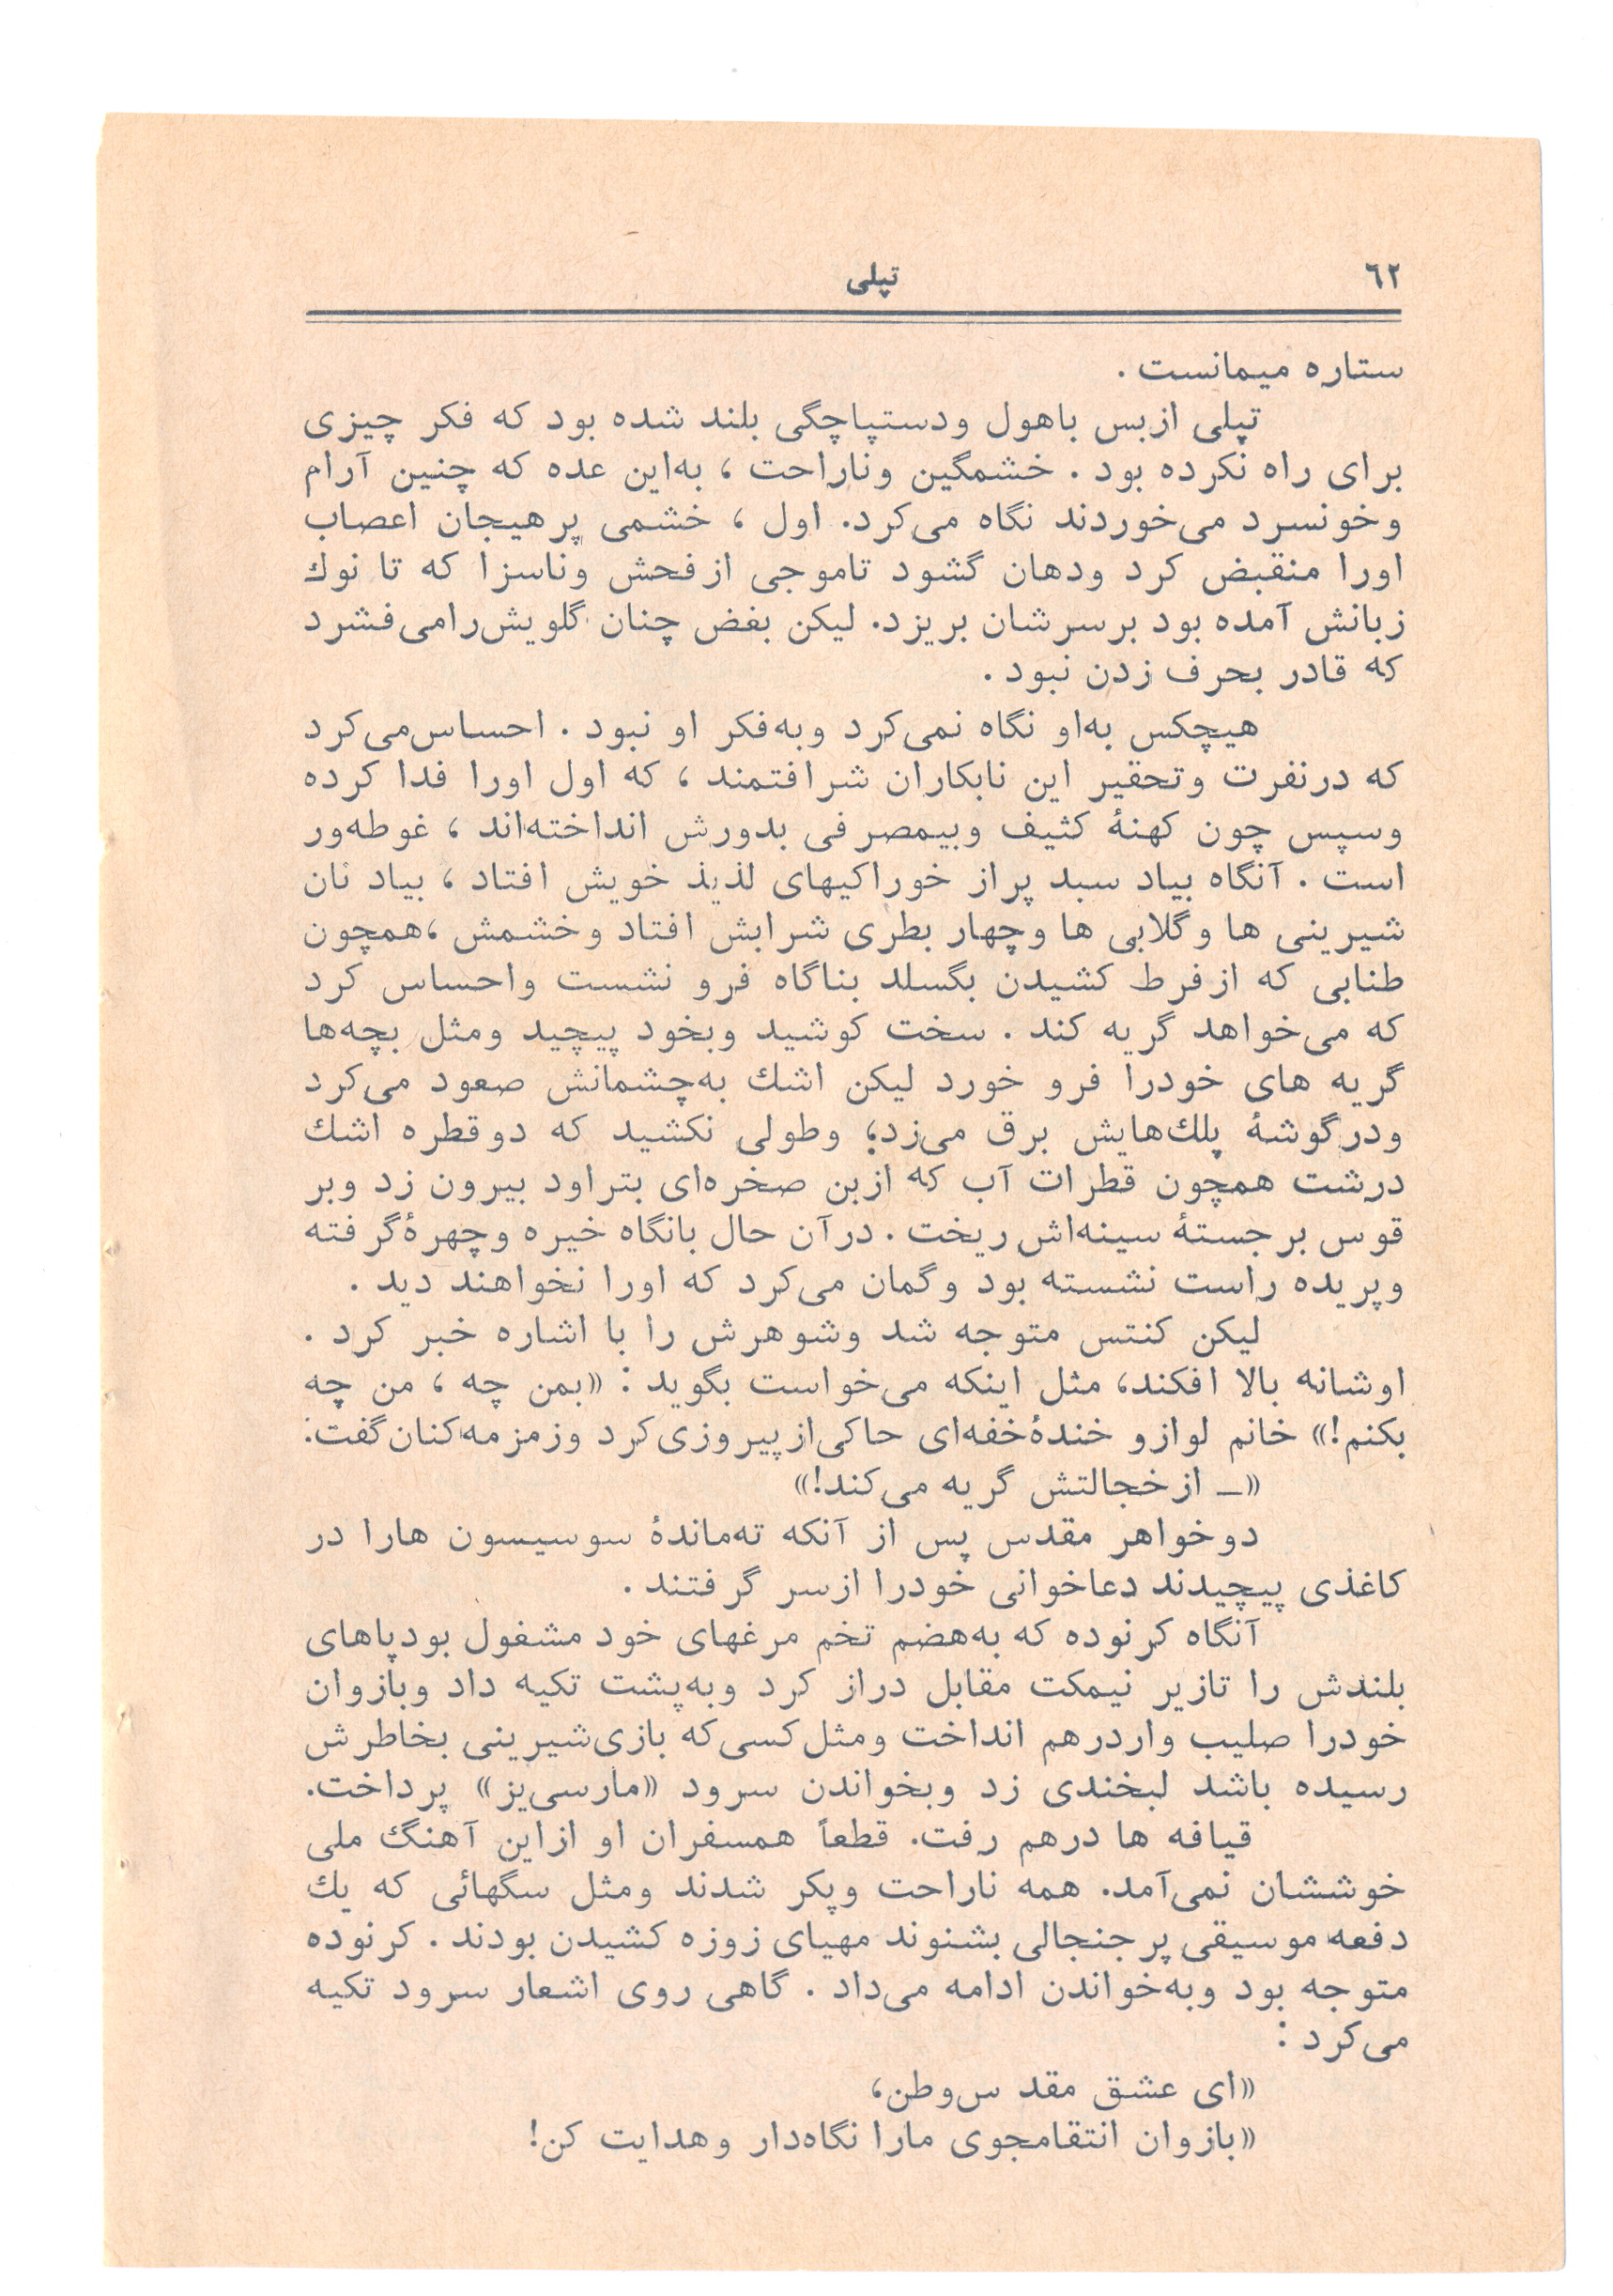 ٦٢
تپلی
ستاره میمانست .
تپلی ازبس باهول ودستپاچگی بلند شده بود که فکر چیزی
برای راه نکرده بود . خشمگین وناراحت ، به‌این عده که چنین آرام
وخونسرد می‌خوردند نگاه می‌کرد. اول ، خشمی پرهیجان اعصاب
اورا منقبض کرد ودهان گشود تاموجی ازفحش وناسزا که تا نوك
زبانش آمده بود برسرشان بریزد. لیکن بغض چنان گلویش‌رامی‌فشرد
که قادر بحرف زدن نبود .
هیچکس به‌او نگاه نمی‌کرد وبه‌فکر او نبود . احساس‌می‌کرد
که درنفرت وتحقیر این نابکاران شرافتمند ، که اول اورا فدا کرده
وسپس چون کهنهٔ کثیف وبیمصرفی بدورش انداخته‌اند ، غوطه‌ور
است . آنگاه بیاد سبد پراز خوراکیهای لذیذ خویش افتاد ، بیاد نان
شیرینی ها وگلابی ها وچهار بطری شرابش افتاد وخشمش ،همچون
طنابی که ازفرط کشیدن بگسلد بناگاه فرو نشست واحساس کرد
که می‌خواهد گریه کند . سخت کوشید وبخود پیچید ومثل بچه‌ها
گریه های خودرا فرو خورد لیکن اشك به‌چشمانش صعود می‌کرد
ودرگوشهٔ پلك‌هایش برق می‌زد؛ وطولی نکشید که دوقطره اشك
درشت همچون قطرات آب که ازبن صخره‌ای بتراود بیرون زد وبر
قوس برجستهٔ سینه‌اش ریخت . درآن حال بانگاه خیره وچهرهٔ‌گرفته
وپریده راست نشسته بود وگمان می‌کرد که اورا نخواهند دید .
لیکن کنتس متوجه شد وشوهرش را با اشاره خبر کرد .
اوشانه بالا افکند، مثل اینکه می‌خواست بگوید : «بمن چه ، من چه
بکنم!» خانم لوازو خندهٔ‌خفه‌ای حاکی‌ازپیروزی‌کرد وزمزمه‌کنان‌گفت:
«ـ ازخجالتش گریه می‌کند!»
دوخواهر مقدس پس از آنکه ته‌ماندهٔ سوسیسون هارا در
کاغذی پیچیدند دعاخوانی خودرا ازسر گرفتند .
آنگاه کرنوده که به‌هضم تخم مرغهای خود مشغول بودپاهای
بلندش را تازیر نیمکت مقابل دراز کرد وبه‌پشت تکیه داد وبازوان
خودرا صلیب واردرهم انداخت ومثل‌کسی‌که بازی‌شیرینی بخاطرش
رسیده باشد لبخندی زد وبخواندن سرود «مارسی‌یز» پرداخت.
قیافه ها درهم رفت. قطعاً همسفران او ازاین آهنگ ملی
خوششان نمی‌آمد. همه ناراحت وپکر شدند ومثل سگهائی که یك
دفعه موسیقی پرجنجالی بشنوند مهیای زوزه کشیدن بودند . کرنوده
متوجه بود وبه‌خواندن ادامه می‌داد . گاهی روی اشعار سرود تکیه
می‌کرد :
«ای عشق مقد س‌وطن،
«بازوان انتقامجوی مارا نگاه‌دار وهدایت کن!